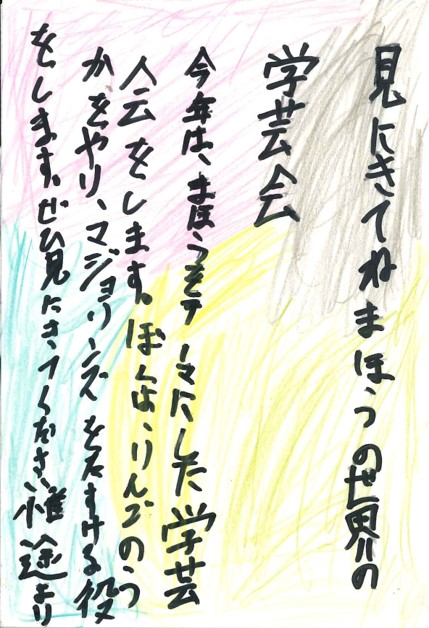 見にきてねまほうの世界の
学芸会
今年は、まほうをテーマにした学芸
会をします。ぼくは、りんごのう
かをやり、マジョリンズをたすける役
をします。ぜひ見にきてください。惟途より